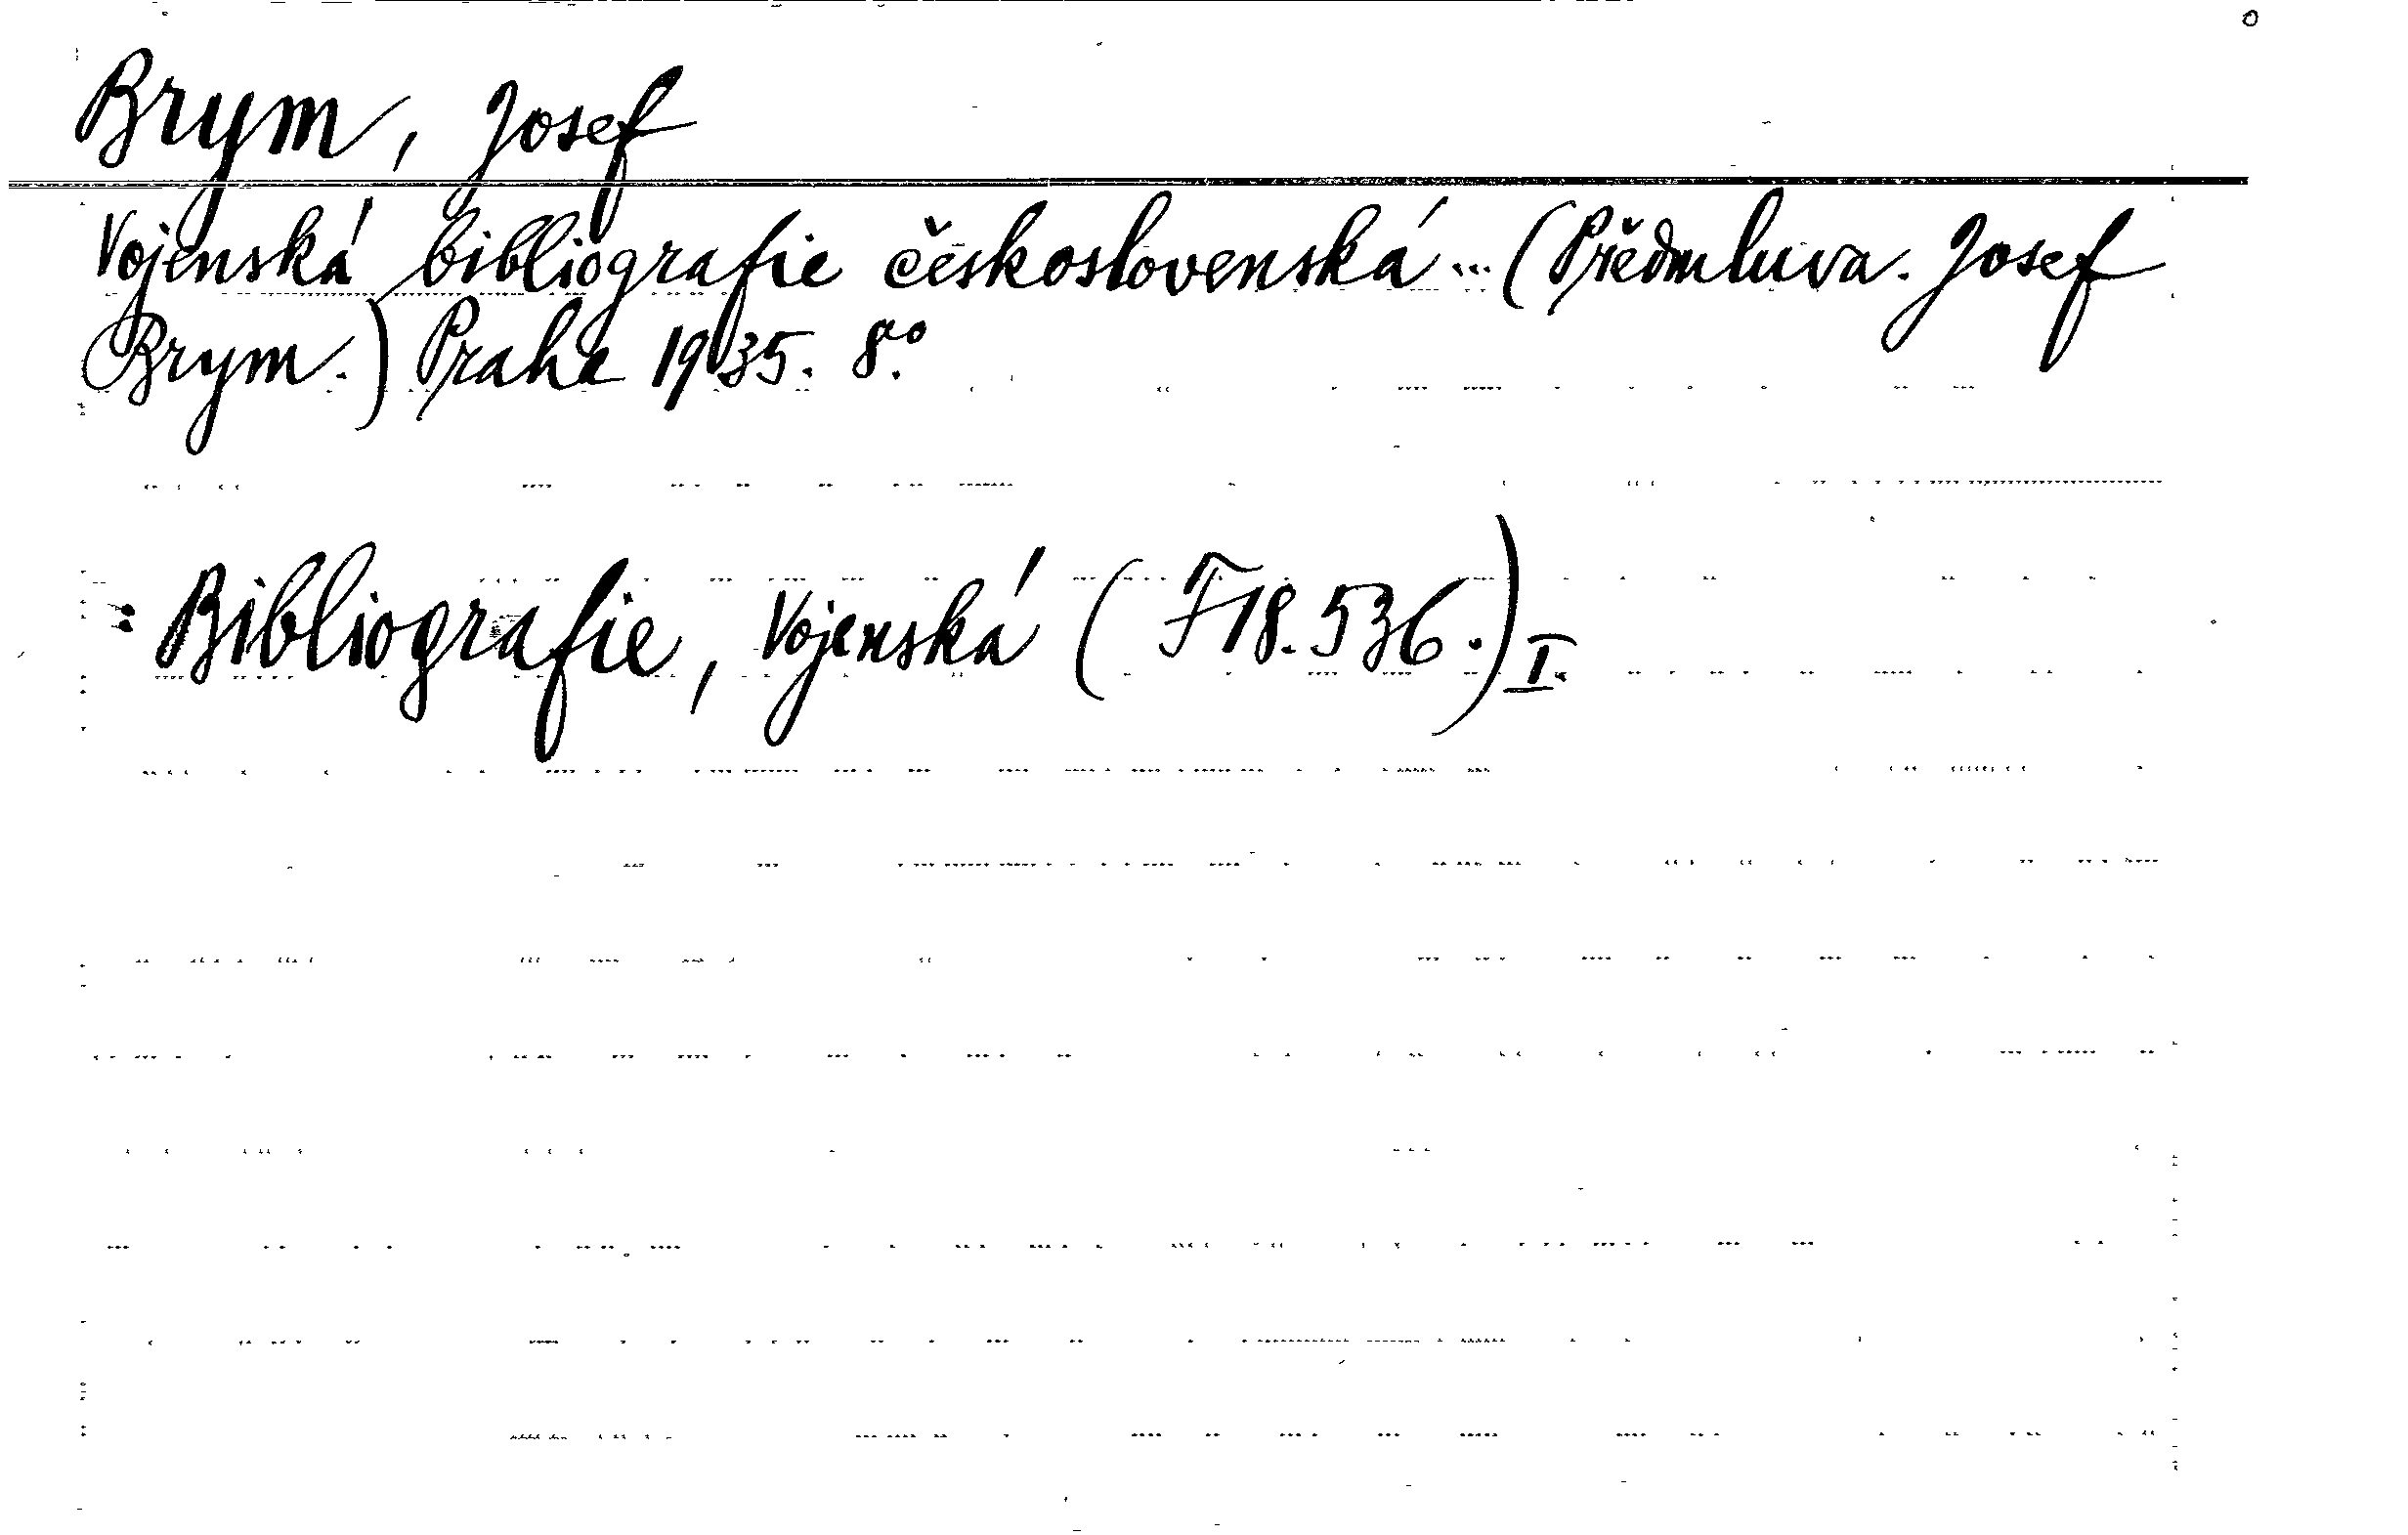 Brym, Josef
Vojenská bibliografie československá... (Předmluva. Josef
Brym.) Praha 1935. 8º.
: Bibliografie, Vojenská (F 18.536.) I.